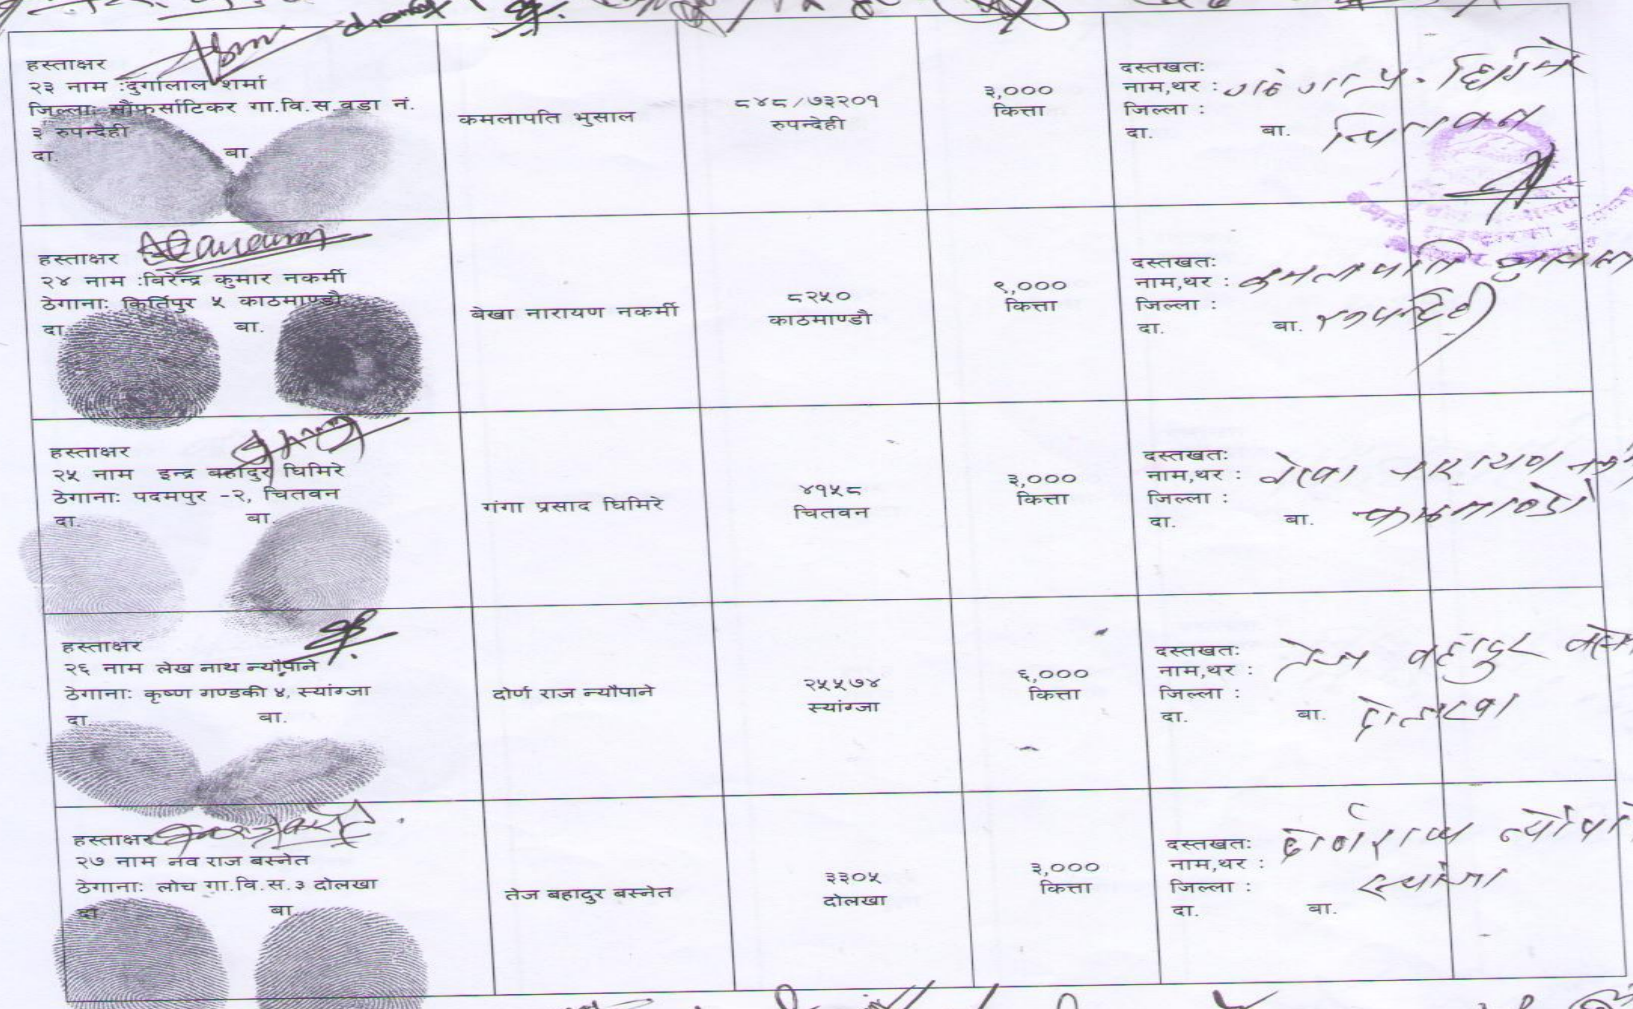 हस्ताक्षर
२३ नाम :दुर्गालाल शर्मा
जिल्लाः सौफर्साटिकर गा.वि.स.वडा नं.
३ रुपन्देही
दा. बा.
कमलापति भुसाल
८४८/७३२०१
रुपन्देही
३,०००
कित्ता
दस्तखतः
नाम,थर : गंगा प्र. घिमिरे
जिल्ला : चितवन
दा. बा.
हस्ताक्षर
२४ नाम :बिरेन्द्र कुमार नकर्मी
ठेगानाः किर्तिपुर ५ काठमाण्डौ
दा. बा.
बेखा नारायण नकर्मी
८२५०
काठमाण्डौ
९,०००
कित्ता
दस्तखतः
नाम,थर : कमलापति भुसाल
जिल्ला : रुपन्देही
दा. बा.
हस्ताक्षर
२५ नाम इन्द्र बहादुर घिमिरे
ठेगानाः पदमपुर -२, चितवन
दा. बा.
गंगा प्रसाद घिमिरे
४१५८
चितवन
३,०००
कित्ता
दस्तखतः
नाम,थर : बेखा नारायण
जिल्ला : काठमाण्डौ
दा. बा.
हस्ताक्षर
२६ नाम लेख नाथ न्यौपाने
ठेगानाः कृष्ण गण्डकी ४, स्यांग्जा
दा. बा.
दोर्ण राज न्यौपाने
२५५७४
स्यांग्जा
६,०००
कित्ता
दस्तखतः
नाम,थर : तेज बहादुर
जिल्ला : दोलखा
दा. बा.
हस्ताक्षर
२७ नाम नव राज बस्नेत
ठेगानाः लोच गा.वि.स.३ दोलखा
दा. बा.
तेज बहादुर बस्नेत
३३०५
दोलखा
३,०००
कित्ता
दस्तखतः
नाम,थर : दोर्णराज
जिल्ला : स्यांग्जा
दा. बा.